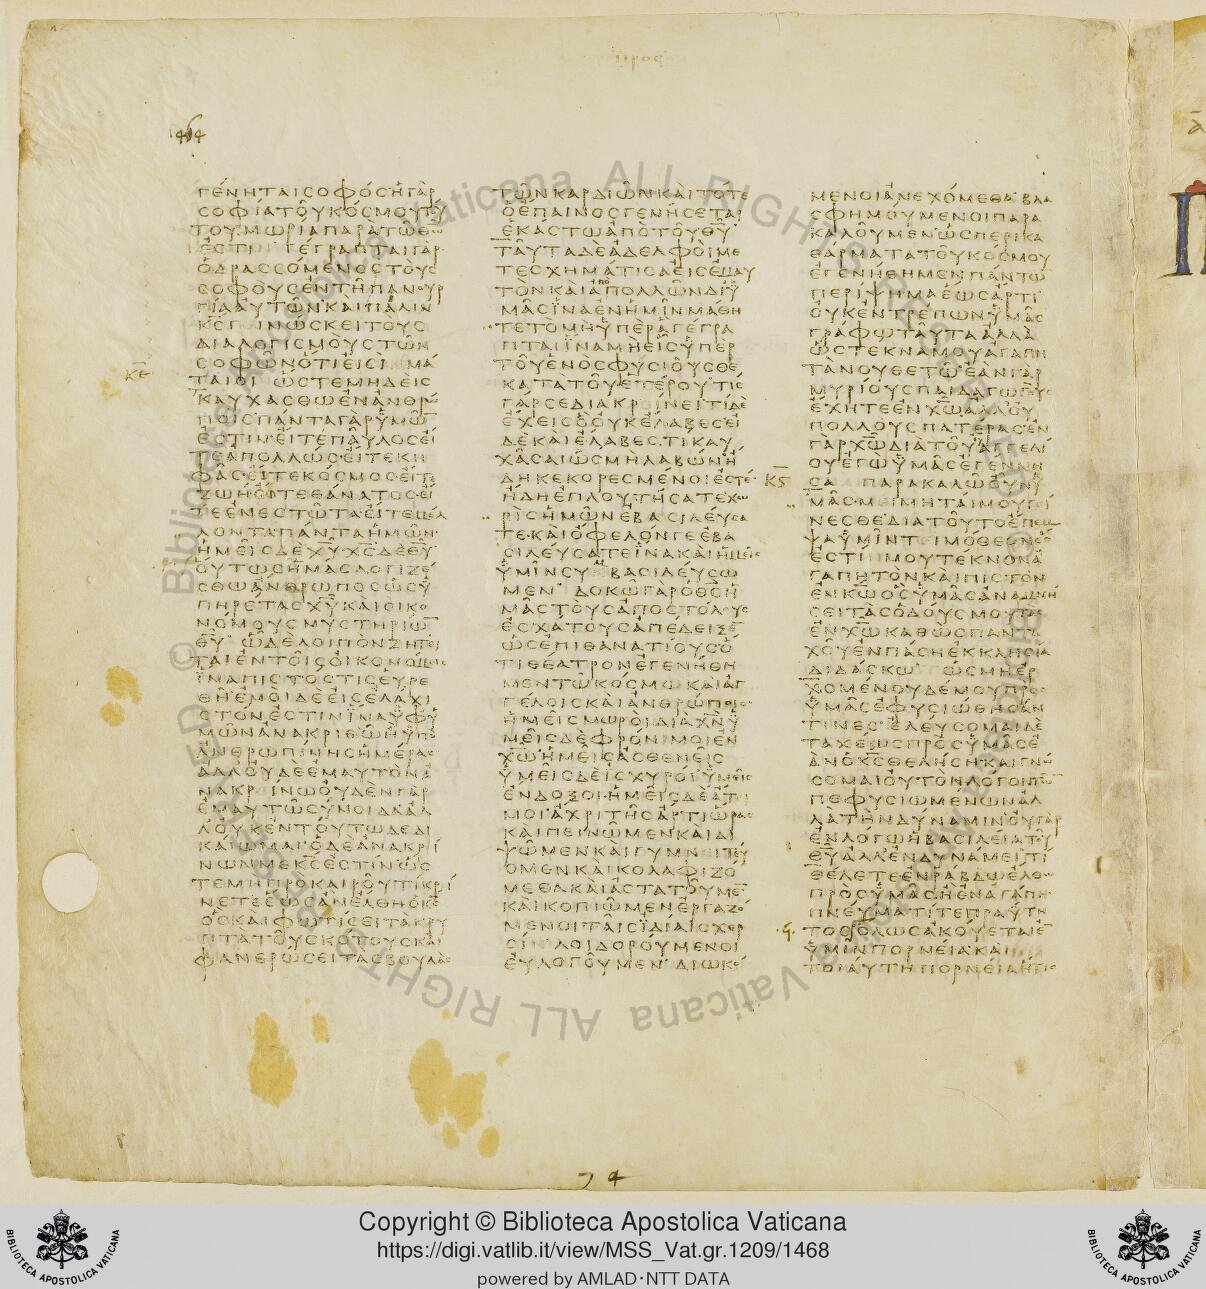 1464
ΓΕΝΗΤΑΙΣΟΦΟΣΗΓΑΡ
ΣΟΦΙΑΤΟΥΚΟΣΜΟΥΤΟΥ
ΤΟΥΜΩΡΙΑΠΑΡΑΤΩΘΩ
ΕΣΤΙΝΓΕΓΡΑΠΤΑΙΓΑΡ
ΟΔΡΑΣΣΟΜΕΝΟΣΤΟΥΣ
ΣΟΦΟΥΣΕΝΤΗΠΑΝΟΥΡ
ΓΙΑΑΥΤΩΝΚΑΙΠΑΛΙΝ
ΚΣΓΕΙΝΩΣΚΕΙΤΟΥΣ
ΔΙΑΛΟΓΙΣΜΟΥΣΤΩΝ
ΣΟΦΩΝΟΤΙΕΙΣΙΜΑ
ΚΕ
ΤΑΙΟΙΩΣΤΕΜΗΔΕΙΣ
ΚΑΥΧΑΣΘΩΕΝΑΝΘΡΩ
ΠΟΙΣΠΑΝΤΑΓΑΡΥΜΩ
ΕΣΤΙΝΕΙΤΕΠΑΥΛΟΣΕΙ
ΤΕΑΠΟΛΛΩΣΕΙΤΕΚΗ
ΦΑΣΕΙΤΕΚΟΣΜΟΣΕΙΤΕ
ΖΩΗΕΙΤΕΘΑΝΑΤΟΣΕΙ
ΤΕΕΝΕΣΤΩΤΑΕΙΤΕΜΕΛ
ΛΟΝΤΑΠΑΝΤΑΗΜΩΝ
ΗΜΕΙΣΔΕΧΥΧΣΔΕΘΥ
ΟΥΤΩΣΗΜΑΣΛΟΓΙΖΕ
ΣΘΩΑΝΘΡΩΠΟΣΩΣΥ
ΠΗΡΕΤΑΣΧΥΚΑΙΟΙΚΟ
ΝΟΜΟΥΣΜΥΣΤΗΡΙΩ
ΘΥΩΔΕΛΟΙΠΟΝΖΗΤΕΙ
ΤΑΙΕΝΤΟΙΣΟΙΚΟΝΟΜΟΙΣ
ΙΝΑΠΙΣΤΟΣΤΙΣΕΥΡΕ
ΘΗΕΜΟΙΔΕΕΙΣΕΛΑΧΙ
ΣΤΟΝΕΣΤΙΝΙΝΑΥΦΥ
ΜΩΝΑΝΑΚΡΙΘΩΗΥΠΟ
ΑΝΘΡΩΠΙΝΗΣΗΜΕΡΑΣ
ΑΛΛΟΥΔΕΕΜΑΥΤΟΝΑ
ΝΑΚΡΕΙΝΩΟΥΔΕΝΓΑΡ
ΕΜΑΥΤΩΣΥΝΟΙΔΑΑΛ
ΛΟΥΚΕΝΤΟΥΤΩΔΕΔΙ
ΚΑΙΩΜΑΙΟΔΕΑΝΑΚΡΙ
ΝΩΝΜΕΚΣΕΣΤΙΝΩΣ
ΤΕΜΗΠΡΟΚΑΙΡΟΥΤΙΚΡΙ
ΝΕΤΕΕΩΣΑΝΕΛΘΗΟΚΣ
ΟΣΚΑΙΦΩΤΙΣΕΙΤΑΚΡΥ
ΠΤΑΤΟΥΣΚΟΤΟΥΣΚΑΙ
ΦΑΝΕΡΩΣΕΙΤΑΣΒΟΥΛΑΣ
ΤΩΝΚΑΡΔΙΩΝΚΑΙΤΟΤΕ
ΟΕΠΑΙΝΟΣΓΕΝΗΣΕΤΑΙ
ΕΚΑΣΤΩΑΠΟΤΟΥΘΥ
ΤΑΥΤΑΔΕΑΔΕΛΦΟΙΜΕ
ΤΕΣΧΗΜΑΤΙΣΑΕΙΣΕΜΑΥ
ΤΟΝΚΑΙΑΠΟΛΛΩΝΔΙΥ
ΜΑΣΙΝΑΕΝΗΜΙΝΜΑΘΗ
ΤΕΤΟΜΗΥΠΕΡΑΓΕΓΡΑ
ΠΤΑΙΙΝΑΜΗΕΙΣΥΠΕΡ
ΤΟΥΕΝΟΣΦΥΣΙΟΥΣΘΕ
ΚΑΤΑΤΟΥΕΤΕΡΟΥΤΙΣ
ΓΑΡΣΕΔΙΑΚΡΕΙΝΕΙΤΙΔΕ
ΕΧΕΙΣΟΟΥΚΕΛΑΒΕΣΕΙ
ΔΕΚΑΙΕΛΑΒΕΣΤΙΚΑΥ
ΧΑΣΑΙΩΣΜΗΛΑΒΩΝΗ
ΔΗΚΕΚΟΡΕΣΜΕΝΟΙΕΣΤΕ
ΗΔΗΕΠΛΟΥΤΗΣΑΤΕΧΩ
ΡΙΣΗΜΩΝΕΒΑΣΙΛΕΥΣΑ
ΤΕΚΑΙΟΦΕΛΟΝΓΕΕΒΑ
ΣΙΛΕΥΣΑΤΕΙΝΑΚΑΙΗΜΕΙΣ
ΥΜΙΝΣΥΜΒΑΣΙΛΕΥΣΩ
ΜΕΝΔΟΚΩΓΑΡΟΘΣΗ
ΜΑΣΤΟΥΣΑΠΟΣΤΟΛΟΥΣ
ΕΣΧΑΤΟΥΣΑΠΕΔΕΙΞΕ
ΩΣΕΠΙΘΑΝΑΤΙΟΥΣΟ
ΤΙΘΕΑΤΡΟΝΕΓΕΝΗΘΗ
ΜΕΝΤΩΚΟΣΜΩΚΑΙΑΓ
ΓΕΛΟΙΣΚΑΙΑΝΘΡΩΠΟΙΣ
ΗΜΕΙΣΜΩΡΟΙΔΙΑΧΝΥ
ΜΕΙΣΔΕΦΡΟΝΙΜΟΙΕΝ
ΧΩΗΜΕΙΣΑΣΘΕΝΕΙΣ
ΥΜΕΙΣΔΕΙΣΧΥΡΟΙΥΜΕΙΣ
ΕΝΔΟΞΟΙΗΜΕΙΣΔΕΑΤΙ
ΜΟΙΑΧΡΙΤΗΣΑΡΤΙΩΡΑΣ
ΚΑΙΠΕΙΝΩΜΕΝΚΑΙΔΙ
ΨΩΜΕΝΚΑΙΓΥΜΝΕΙΤΕΥ
ΟΜΕΝΚΑΙΚΟΛΑΦΙΖΟ
ΜΕΘΑΚΑΙΑΣΤΑΤΟΥΜΕ
ΚΑΙΚΟΠΙΩΜΕΝΕΡΓΑΖΟ
ΜΕΝΟΙΤΑΙΣΙΔΙΑΙΣΧΕΡ
ΣΙΝΛΟΙΔΟΡΟΥΜΕΝΟΙ
ΕΥΛΟΓΟΥΜΕΝΔΙΩΚΟ
ΜΕΝΟΙΑΝΕΧΟΜΕΘΑΒΛΑ
ΣΦΗΜΟΥΜΕΝΟΙΠΑΡΑ
ΚΑΛΟΥΜΕΝΩΣΠΕΡΙΚΑ
ΘΑΡΜΑΤΑΤΟΥΚΟΣΜΟΥ
ΕΓΕΝΗΘΗΜΕΝΠΑΝΤΩ
ΠΕΡΙΨΗΜΑΕΩΣΑΡΤΙ
ΟΥΚΕΝΤΡΕΠΩΝΥΜΑΣ
ΓΡΑΦΩΤΑΥΤΑΑΛΛΑ
ΩΣΤΕΚΝΑΜΟΥΑΓΑΠΗ
ΤΑΝΟΥΘΕΤΩΕΑΝΓΑΡ
ΜΥΡΙΟΥΣΠΑΙΔΑΓΩΓΟΥΣ
ΕΧΗΤΕΕΝΧΩΑΛΛΟΥ
ΠΟΛΛΟΥΣΠΑΤΕΡΑΣΕΝ
ΓΑΡΧΩΔΙΑΤΟΥΕΥΑΓΓΕΛΙ
ΟΥΕΓΩΥΜΑΣΕΓΕΝΝΗ
ΚϚ ΣΑΠΑΡΑΚΑΛΩΟΥΝΥ
ΜΑΣΜΕΙΜΗΤΑΙΜΟΥΓΕΙ
ΝΕΣΘΕΔΙΑΤΟΥΤΟΕΠΕΜ
ΨΑΥΜΙΝΤΕΙΜΟΘΕΟΝΟΣ
ΕΣΤΙΜΟΥΤΕΚΝΟΝΑ
ΓΑΠΗΤΟΝΚΑΙΠΙΣΤΟΝ
ΕΝΚΩΟΣΥΜΑΣΑΝΑΜΝΗ
ΣΕΙΤΑΣΟΔΟΥΣΜΟΥΤΑΣ
ΕΝΧΩΚΑΘΩΣΠΑΝΤΑ
ΧΟΥΕΝΠΑΣΗΕΚΚΛΗΣΙΑ
ΔΙΔΑΣΚΩΩΣΜΗΕΡ
ΧΟΜΕΝΟΥΔΕΜΟΥΠΡΟΣ
ΥΜΑΣΕΦΥΣΙΩΘΗΣΑΝ
ΤΙΝΕΣΕΛΕΥΣΟΜΑΙΔΕ
ΤΑΧΕΩΣΠΡΟΣΥΜΑΣΕ
ΑΝΟΚΣΘΕΛΗΣΗΚΑΙΓΝΩ
ΣΟΜΑΙΟΥΤΟΝΛΟΓΟΝΤΩΝ
ΠΕΦΥΣΙΩΜΕΝΩΝΑΛ
ΛΑΤΗΝΔΥΝΑΜΙΝΟΥΓΑΡ
ΕΝΛΟΓΩΗΒΑΣΙΛΕΙΑΤΟΥ
ΘΥΑΛΛΕΝΔΥΝΑΜΕΙΤΙ
ΘΕΛΕΤΕΕΝΡΑΒΔΩΕΛΘΩ
ΠΡΟΣΥΜΑΣΗΕΝΑΓΑΠΗ
ΠΝΕΥΜΑΤΙΤΕΠΡΑΥΤΗ
ΤΟΣΟΛΩΣΑΚΟΥΕΤΑΙΕ
ΥΜΙΝΠΟΡΝΕΙΑΚΑΙ
ΤΟΙΑΥΤΗΠΟΡΝΕΙΑΗΤΙΣ
74
Copyright © Biblioteca Apostolica Vaticana
https://digi.vatlib.it/view/MSS_Vat.gr.1209/1468
powered by AMLAD·NTT DATA
BIBLIOTECA APOSTOLICA VATICANA
BIBLIOTECA APOSTOLICA VATICANA